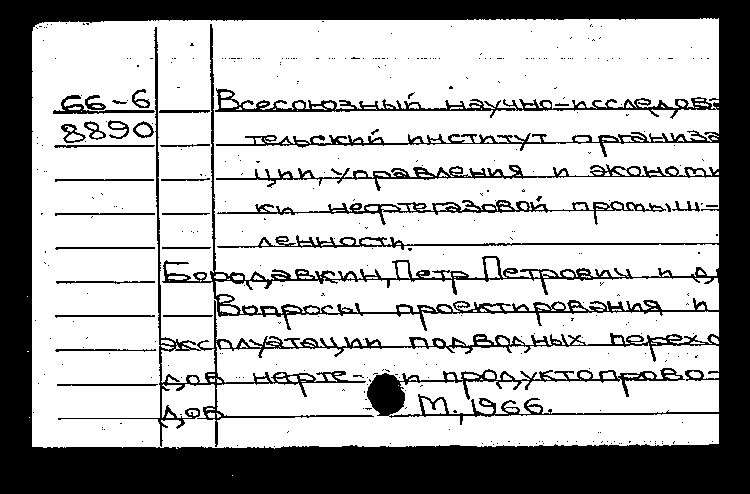 66-6 Всесоюзный научно-исследова
8890 тельский институт организа
ции, управления и экономи
ки нефтегазовой промыш-
ленности.
Бородавкин, Петр Петрович и д
Вопросы проектирования и
эксплуатации подводных перехо
дов нефте- и продуктопрово-
дов М., 1966.